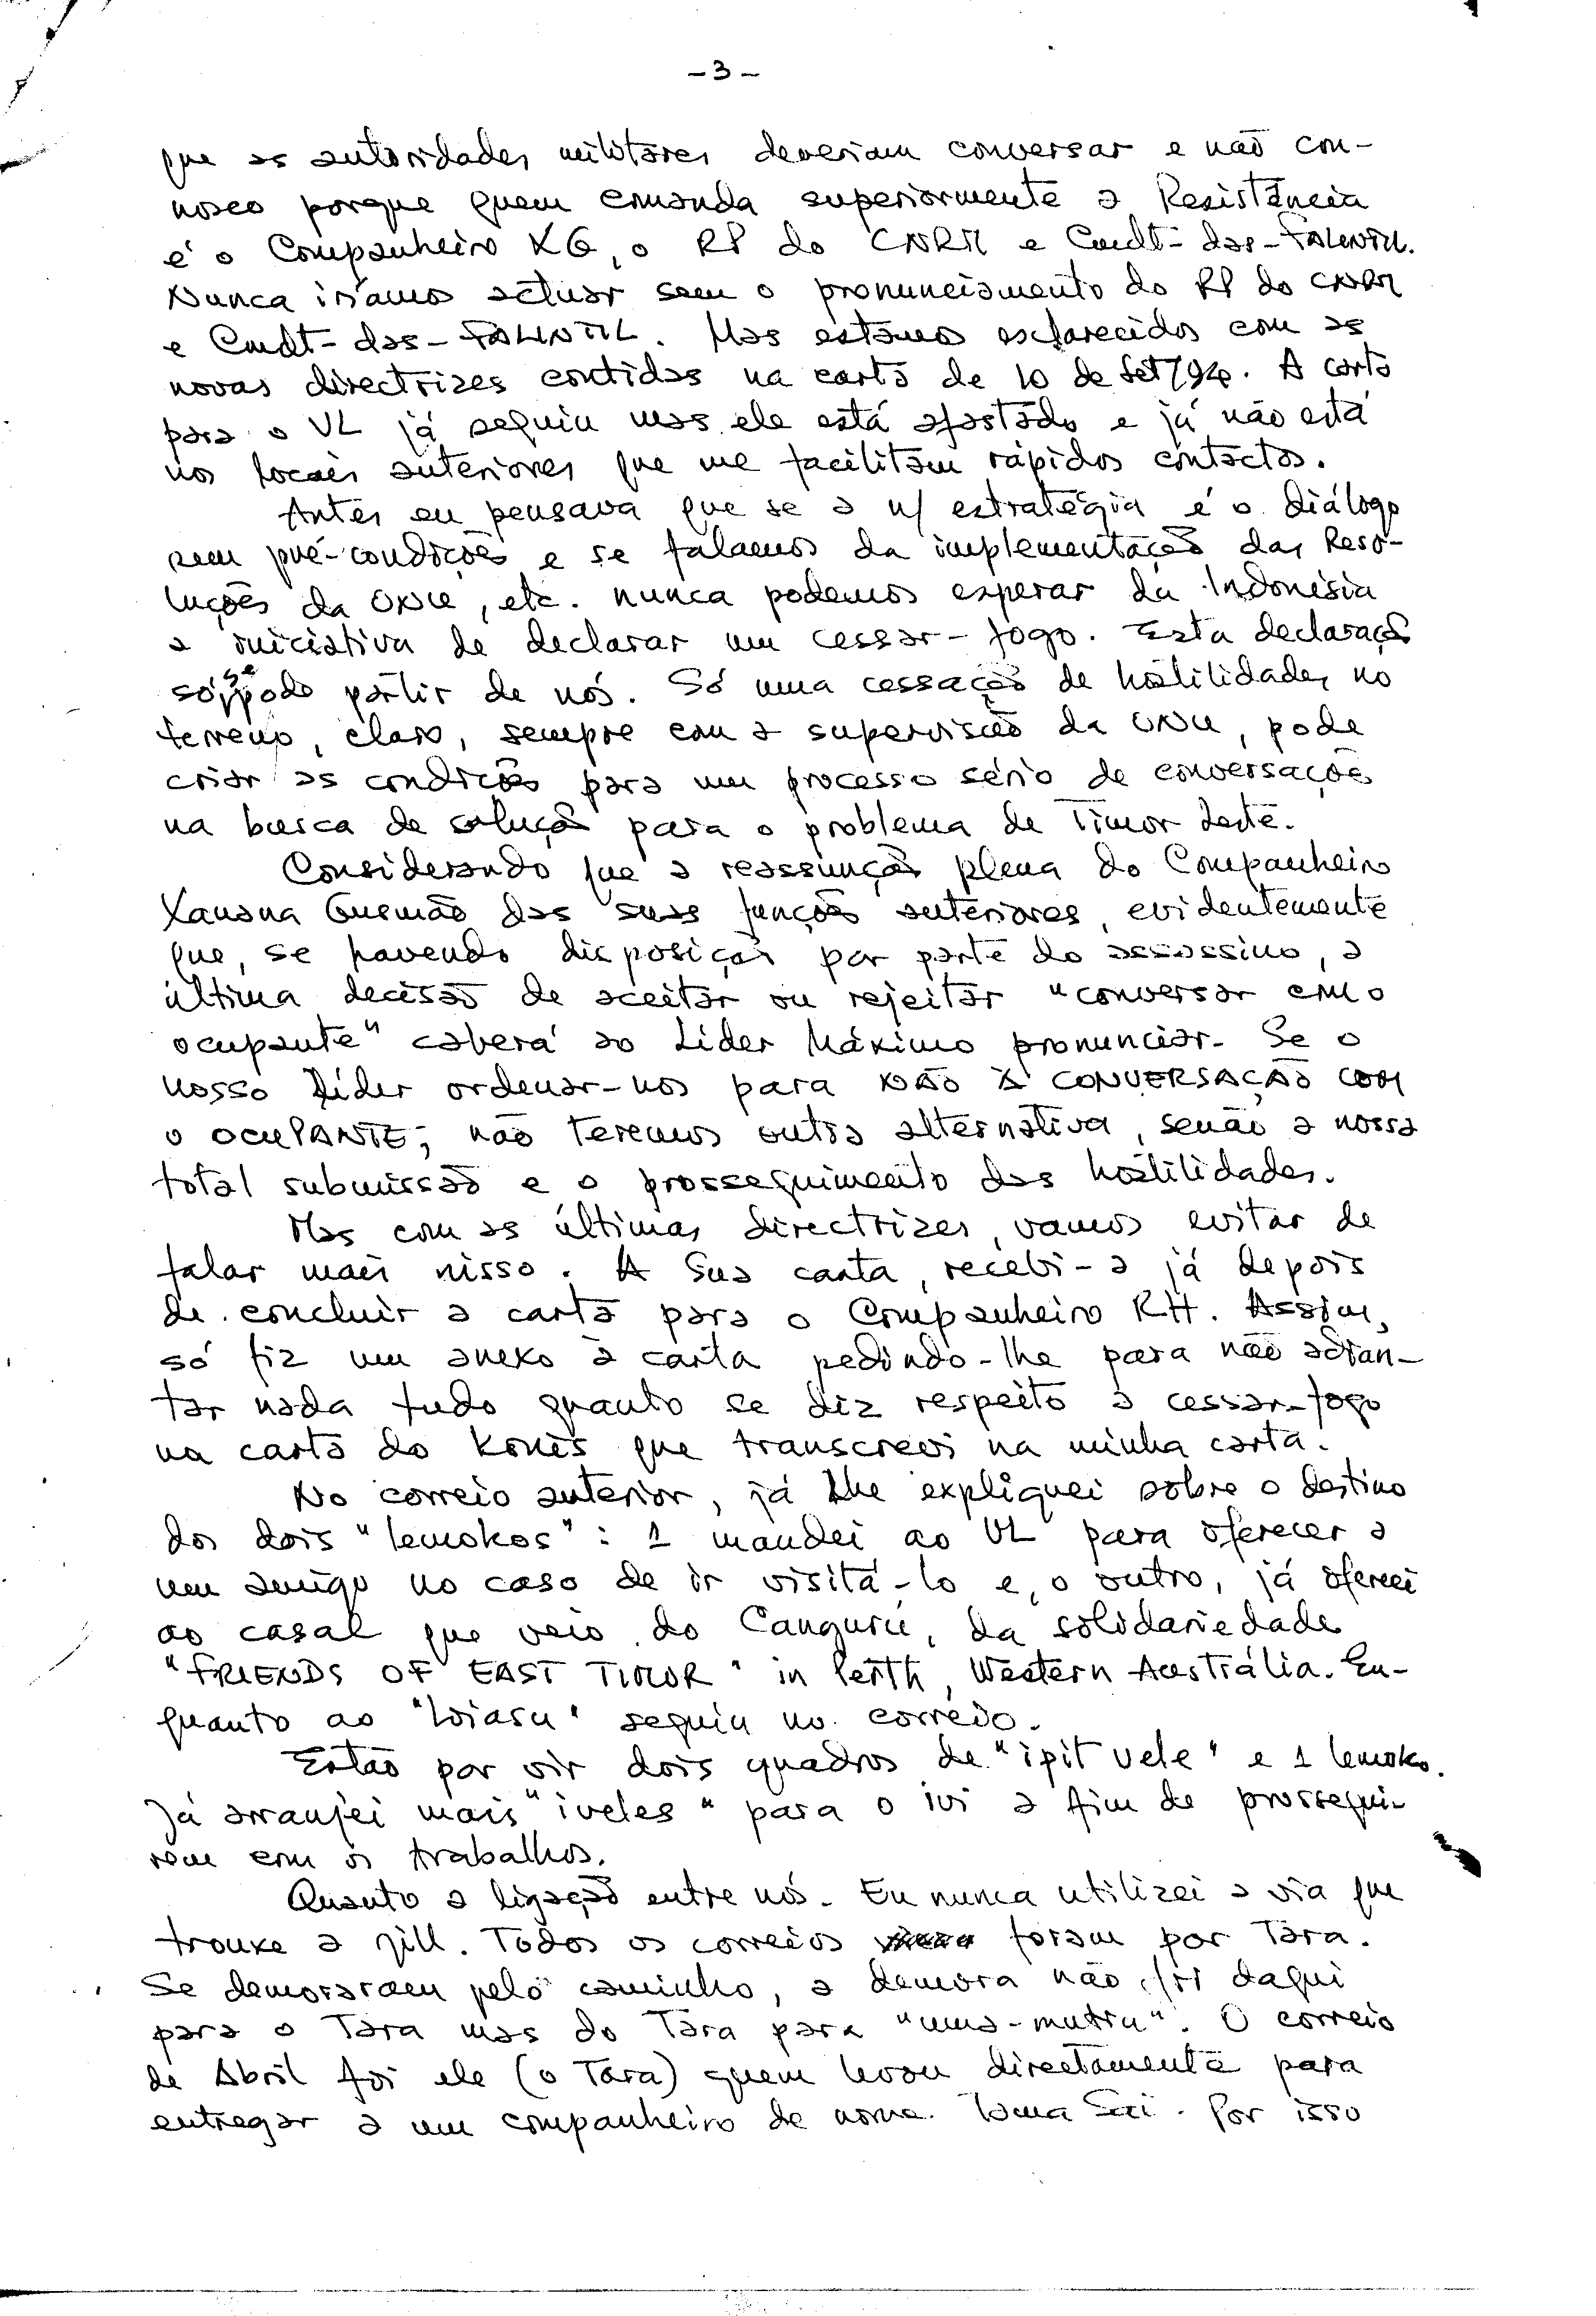 - 3 -
que as autoridades militares deveriam conversar e não con-
nosco porque quem comanda superiormente a Resistência
é o Companheiro XG, o RP do CNRM e Cmdt- das - FALINTIL.
Nunca iríamos actuar sem o pronunciamento do RP do CNRM
e Cmdt- das - FALINTIL. Mas estamos esclarecidos com as
novas directrizes contidas na carta de 10 de Set/94. A carta
para o VL já seguiu mas ele está afastado e já não está
nos locais anteriores que me facilitam rápidos contactos.
Antes eu pensava que se a n/ estratégia é o diálogo
sem pré-condições e se falamos da implementação das Reso-
luções da ONU, etc. nunca podemos esperar da Indonésia
a iniciativa de declarar um cessar-fogo. Esta declaração
só se pode partir de nós. Só uma cessação de hostilidades no
terreno, claro, sempre com a supervisão da ONU, pode
criar as condições para um processo sério de conversações
na busca de solução para o problema de Timor Leste.
Considerando que a reassunção plena do Companheiro
Xanana Gusmão das suas funções anteriores, evidentemente
que, se havendo disposição por parte do assassino, a
última decisão de aceitar ou rejeitar "conversar com o
ocupante" caberá ao Líder Máximo pronunciar. Se o
nosso Líder ordenar-nos para NÃO À CONVERSAÇÃO COM
O OCUPANTE, não teremos outra alternativa, senão a nossa
total submissão e o prosseguimento das hostilidades.
Mas com as últimas directrizes, vamos evitar de
falar mais nisso. A Sua carta, recebi-a já depois
de concluir a carta para o Companheiro RH. Assim,
só fiz um anexo à carta pedindo-lhe para não adian-
tar nada tudo quanto se diz respeito a cessar-fogo
na carta do Konis que transcrevi na minha carta.
No correio anterior, já lhe expliquei sobre o destino
dos dois "lemokos": 1 mandei ao VL para oferecer a
um amigo no caso de ir visitá-lo e, o outro, já oferecí
ao casal que veio do Canguru, da solidariedade
"FRIENDS OF EAST TIMOR" in Perth, Western Austrália. En-
quanto ao "loiasu" seguiu no correio.
Estão por vir dois quadros de "ipit vele" e 1 lemoko.
Já arranjei mais "iveles" para o ivi a fim de prossegui-
rem com os trabalhos.
Quanto a ligação entre nós. Eu nunca utilizei a via que
trouxe a Jill. Todos os correios foram por Tara.
Se demoraram pelo caminho, a demora não foi daqui
para o Tara mas do Tara para "uma-mutin". O correio
de Abril foi ele (o Tara) quem levou directamente para
entregar a um companheiro de nome Soi. Por isso